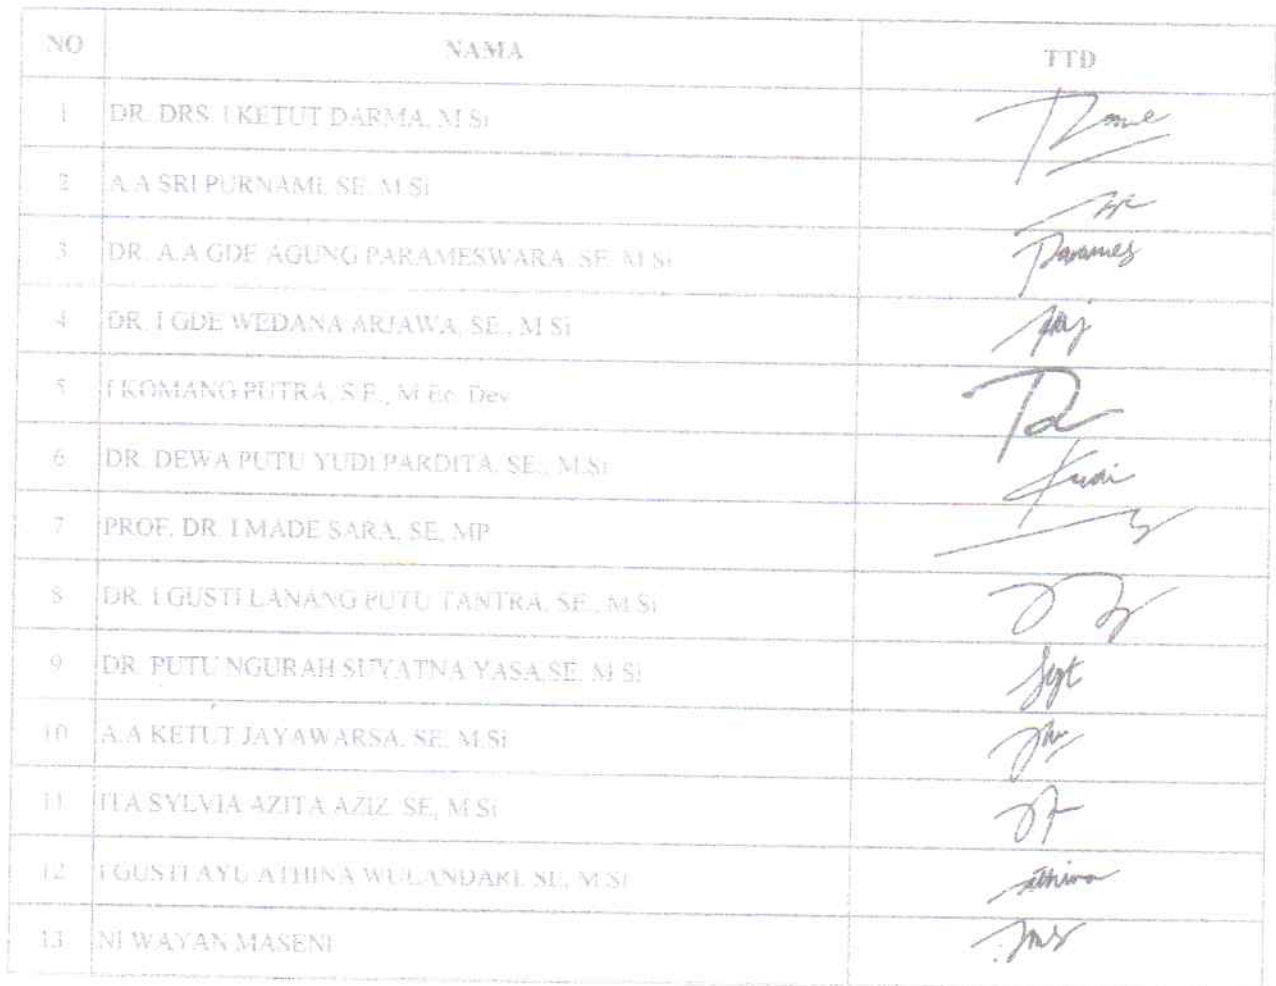 NO NAMA TTD
1 DR. DRS. I KETUT DARMA, M.Si
2 A.A SRI PURNAMI, SE, M.Si
3 DR. A.A GDE AGUNG PARAMESWARA, SE, M.Si Parames
4 DR. I GDE WEDANA ARJAWA, SE., M.Si
5 I KOMANG PUTRA, S.E., M.Ec. Dev
6 DR. DEWA PUTU YUDI PARDITA, SE., M.Si Yudi
7 PROF. DR. I MADE SARA, SE, MP
8 DR. I GUSTI LANANG PUTU TANTRA, SE., M.Si
9 DR. PUTU NGURAH SUYATNA YASA,SE, M.Si Syt
10 A.A KETUT JAYAWARSA, SE, M.Si
11 ITA SYLVIA AZITA AZIZ, SE, M.Si
12 I GUSTI AYU ATHINA WULANDARI, SE, M.Si athina
13 NI WAYAN MASENI